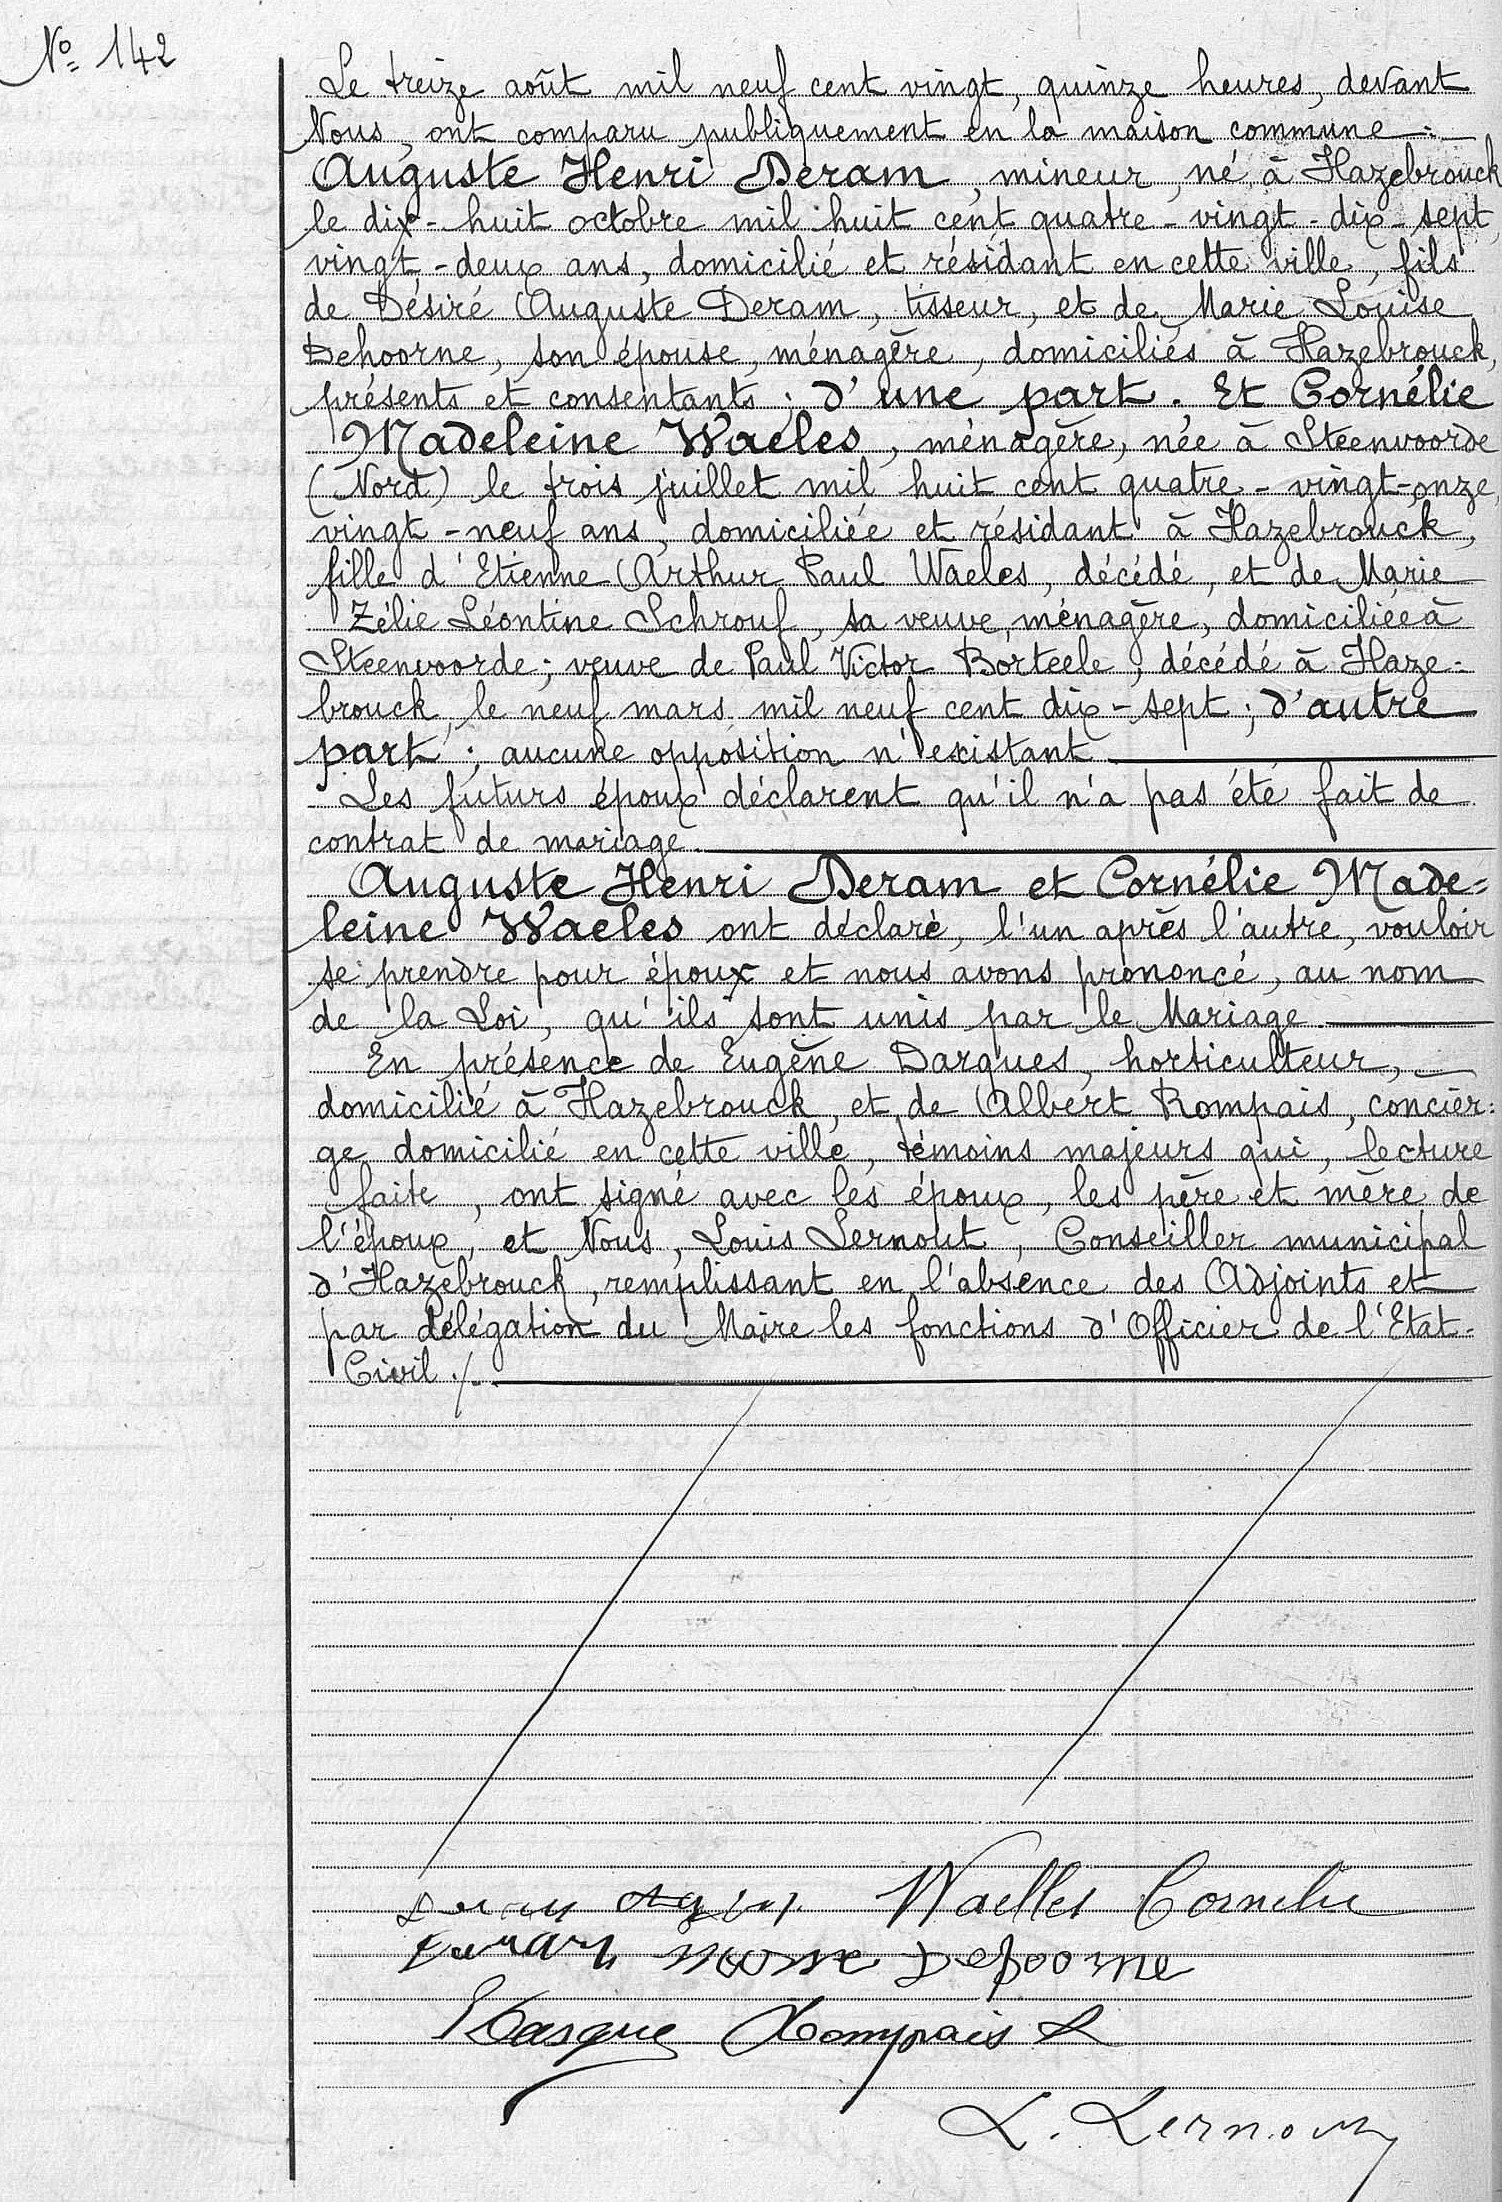 Nº 142
Le treize août mil neuf cent vingt, quinze heures, devant
Nous, ont comparu publiquement en la maison commune :
Auguste Henri Deram, mineur, né à Hazebrouck
le dix-huit octobre mil huit cent quatre-vingt-dix-sept,
vingt-deux ans, domicilié et résidant en cette ville, fils
de Désiré Auguste Deram, tisseur, et de Marie Louise
Dehoorne, son épouse, ménagère, domiciliés à Hazebrouck,
présents et consentants ; d'une part. Et Cornélie
Madeleine Waeles, ménagère, née à Steenvoorde
(Nord) le trois juillet mil huit cent quatre-vingt-onze,
vingt-neuf ans, domiciliée et résidant à Hazebrouck,
fille d'Etienne Arthur Paul Waeles, décédé, et de Marie
Zélie Léontine Schrouf, sa veuve, ménagère, domiciliée à
Steenvoorde ; veuve de Paul Victor Borteele, décédé à Haze-
brouck, le neuf mars mil neuf cent dix-sept ; d'autre
part ; aucune opposition n'existant
Les futurs époux déclarent qu'il n'a pas été fait de
contrat de mariage.
Auguste Henri Deram et Cornélie Made-
leine Waeles ont déclaré, l'un après l'autre, vouloir
se prendre pour époux et nous avons prononcé, au nom
de la Loi, qu'ils sont unis par le Mariage
En présence de Eugène Darques, horticulteur,
domicilié à Hazebrouck, et de Albert Rompais, concier-
ge domicilié en cette ville, témoins majeurs qui, lecture
faite, ont signé avec les époux, les père et mère de
l'époux, et Nous, Louis Lernout, Conseiller municipal
d'Hazebrouck, remplissant en l'absence des Adjoints et
par délégation du Maire les fonctions d'Officier de l'Etat-
Civil ./.
Waelles Cornelie
Dehoorne
Darque Rompais A
L. Lernout